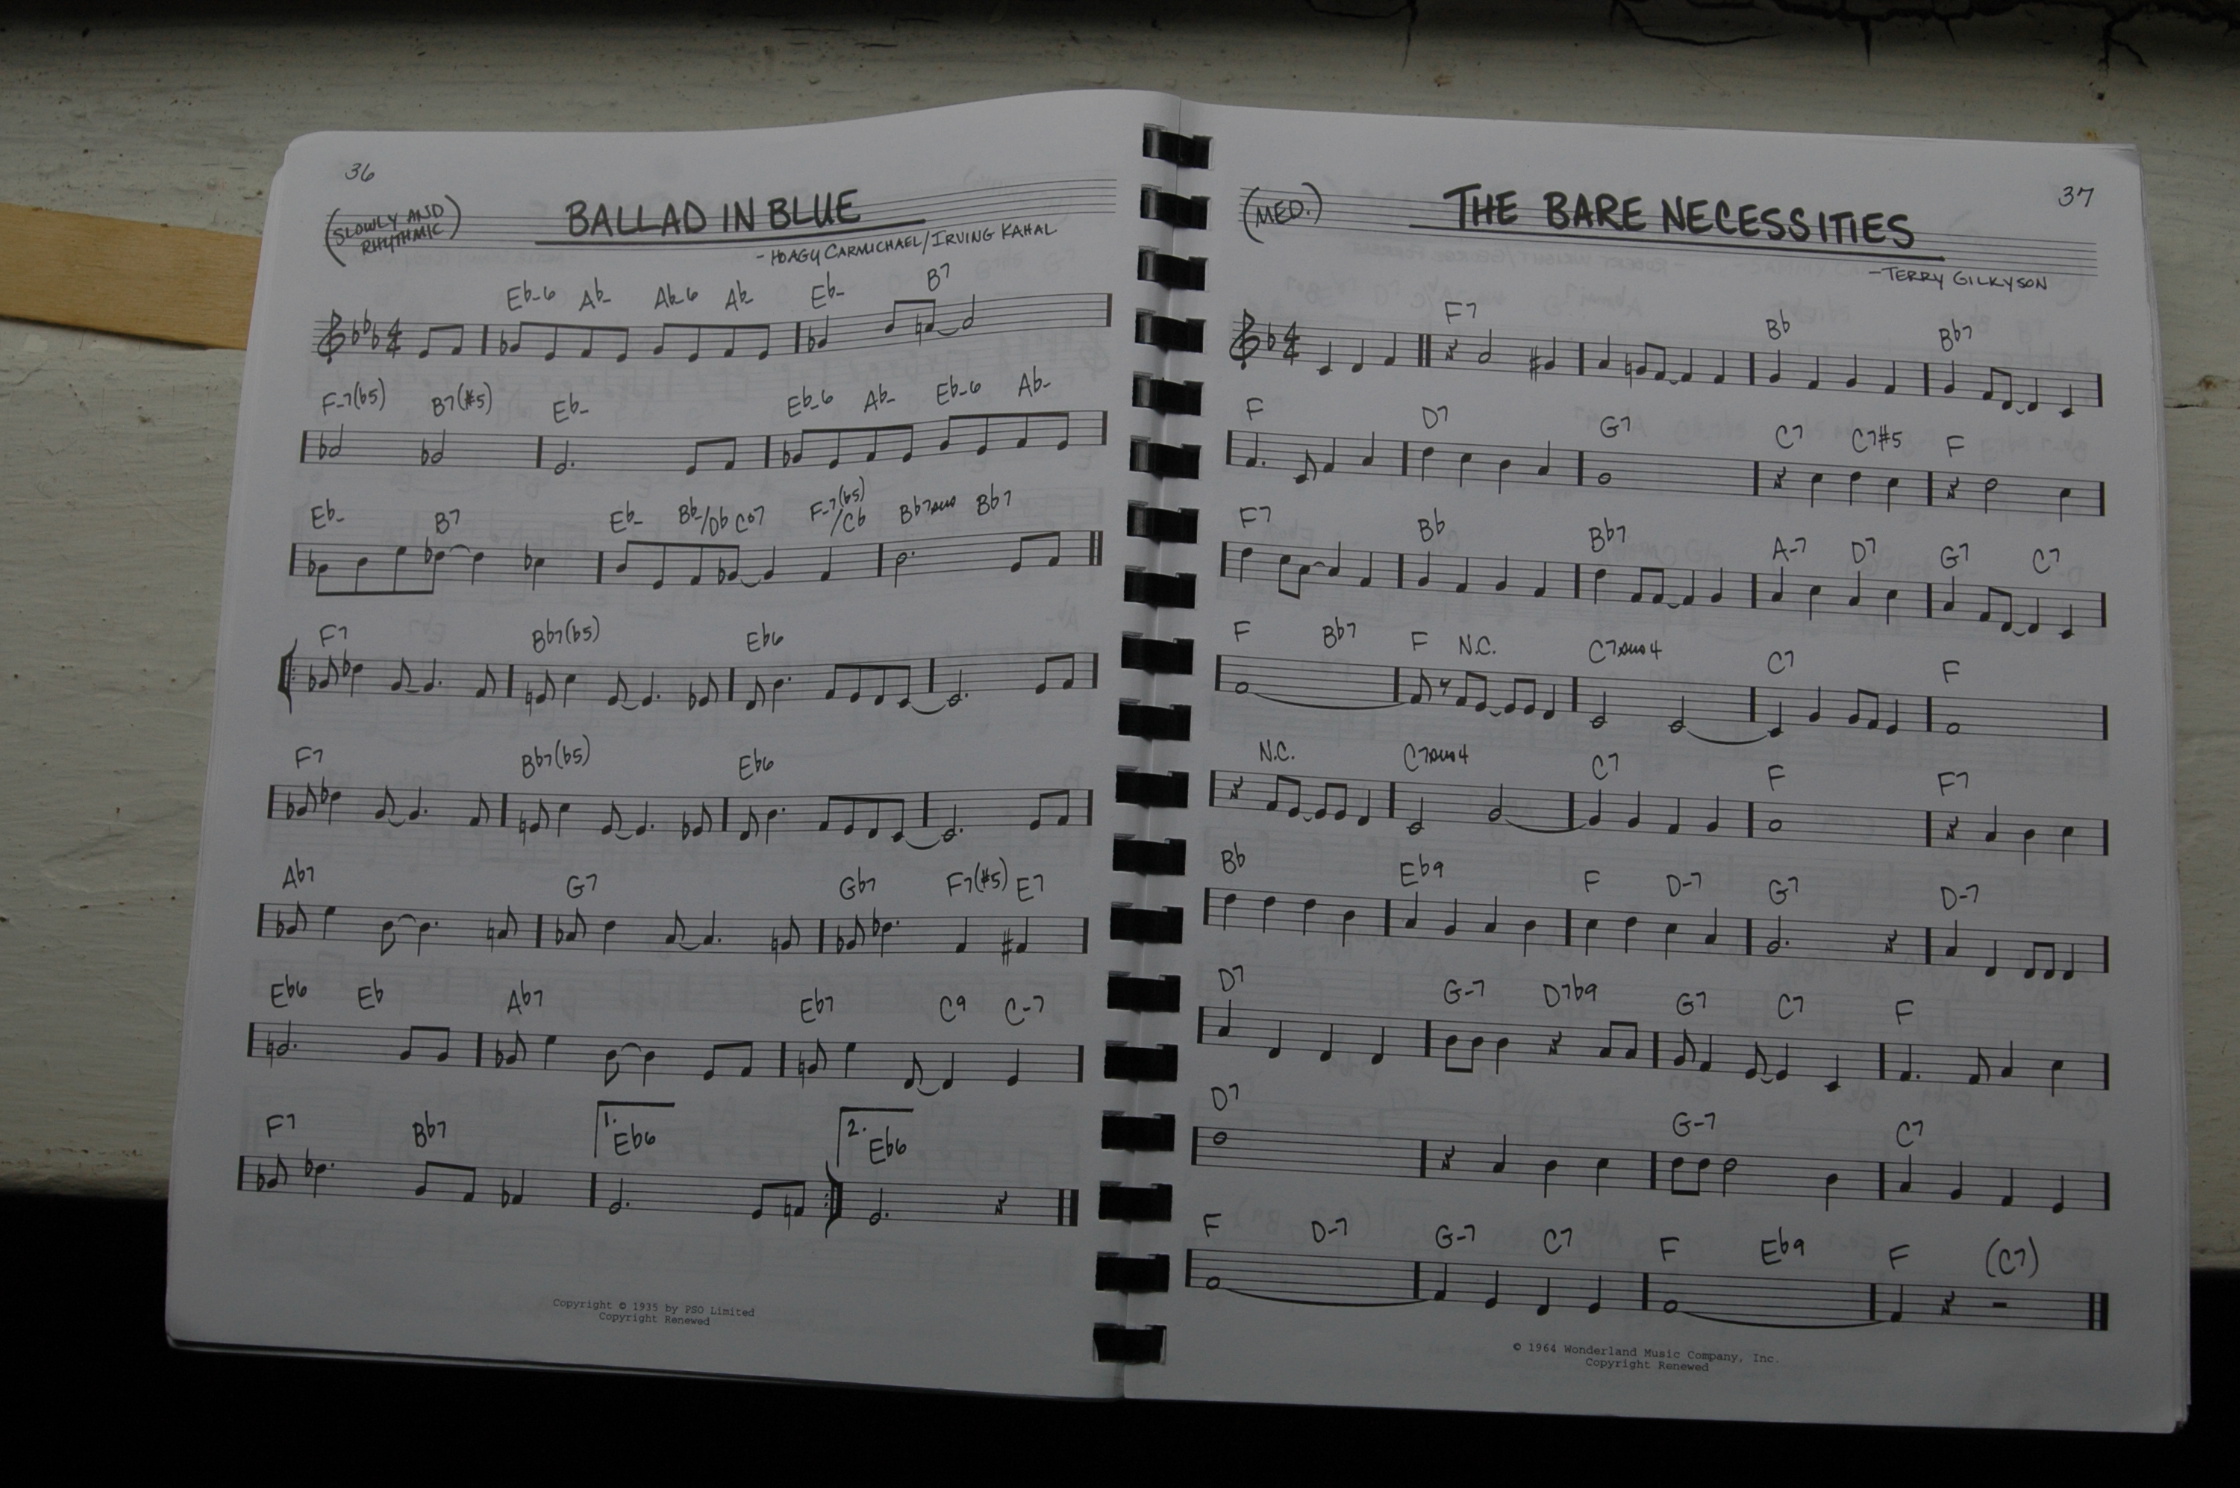 36
(SLOWLY AND
RHYTHMIC)
BALLAD IN BLUE
- HOAGY CARMICHAEL/IRVING KAHAL
Eb-6 Ab- Ab-6 Ab- Eb- B7
F-7(b5) B7(#5) Eb- Eb-6 Ab- Eb-6 Ab-
Eb- B7 Eb- Bb-/Db Co7 F-7(b5)/Cb Bb7sus Bb7
F7 Bb7(b5) Eb6
F7 Bb7(b5) Eb6
Ab7 G7 Gb7 F7(#5) E7
Eb6 Eb Ab7 Eb7 C9 C-7
F7 Bb7 1. Eb6 2. Eb6
Copyright © 1935 by PSO Limited
Copyright Renewed
37
(MED.)
THE BARE NECESSITIES
-TERRY GILKYSON
F7 Bb Bb7
F D7 G7 C7 C7#5 F
F7 Bb Bb7 A-7 D7 G7 C7
F Bb7 F N.C. C7sus4 C7 F
N.C. C7sus4 C7 F F7
Bb Eb9 F D-7 G7 D-7
D7 G-7 D7b9 G7 C7 F
D7 G-7 C7
F D-7 G-7 C7 F Eb9 F (C7)
© 1964 Wonderland Music Company, Inc.
Copyright Renewed